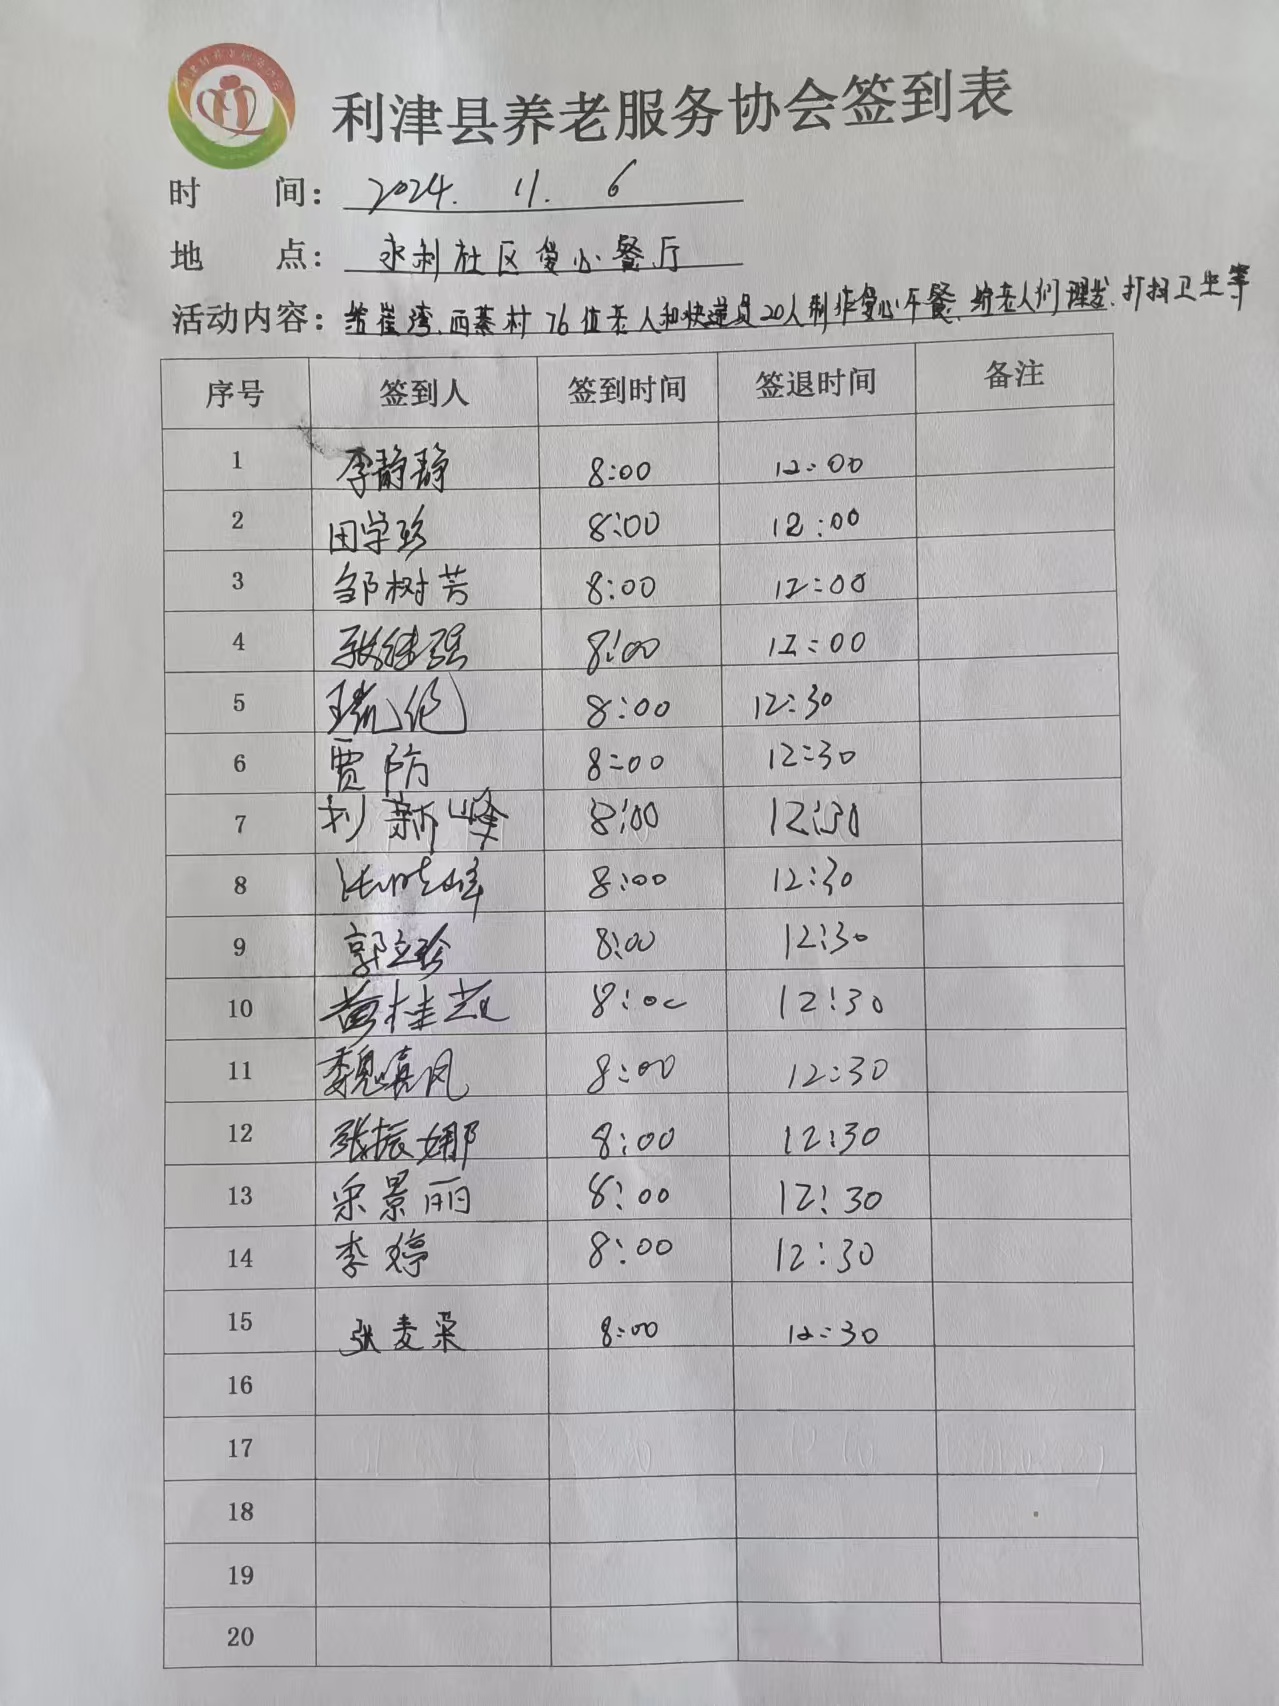 利津县养老服务协会签到表
时 间: 2024. 11. 6
地 点: 永利社区爱心餐厅
活动内容: 给崔湾、西蔡村76位老人和快递员20人制作爱心午餐、给老人们理发、打扫卫生等
序号 签到人 签到时间 签退时间 备注
1 李静静 8:00 12:00
2 田学珍 8:00 12:00
3 邹树芳 8:00 12:00
4 张继强 8:00 12:00
5 8:00 12:30
6 贾防 8:00 12:30
7 刘新峰 8:00 12:30
8 8:00 12:30
9 郭立珍 8:00 12:30
10 黄桂 8:00 12:30
11 魏 凤 8:00 12:30
12 张振娜 8:00 12:30
13 宋景丽 8:00 12:30
14 李婷 8:00 12:30
15 张麦采 8:00 12:30
16
17
18
19
20